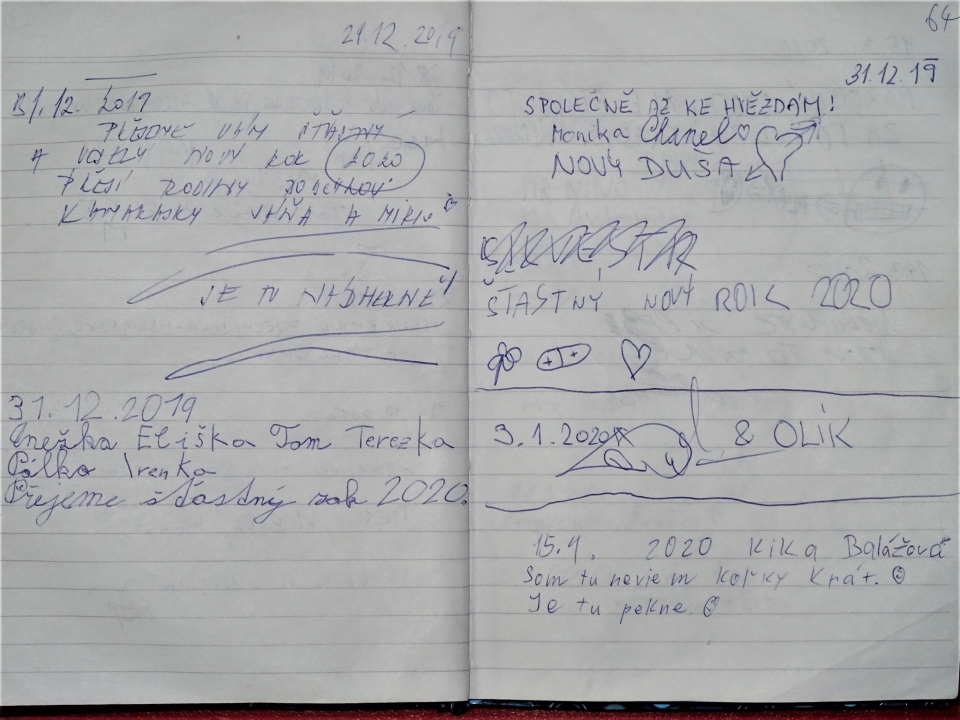 29.12.2019
31.12. 2019
VÁM ŠŤASTNÝ
A NOVÝ ROK 2020
RODINY
KAMARÁDKY VÁŇA A
JE TU NÁDHERNĚ!
31.12.2019
Anežka Eliška Tom Terezka
Irenka
Přejeme šťastný rok 2020.
64
31.12.19
SPOLEČNĚ AŽ KE HVĚZDÁM!
Monika Chanel
NOVÝ DUŠA
ŠŤASTNÝ NOVÝ ROIK 2020
3.1.2020
& OLÍK
15.1. 2020 Kika Balážová
Som tu neviem koľky krát.
Je tu pekne.